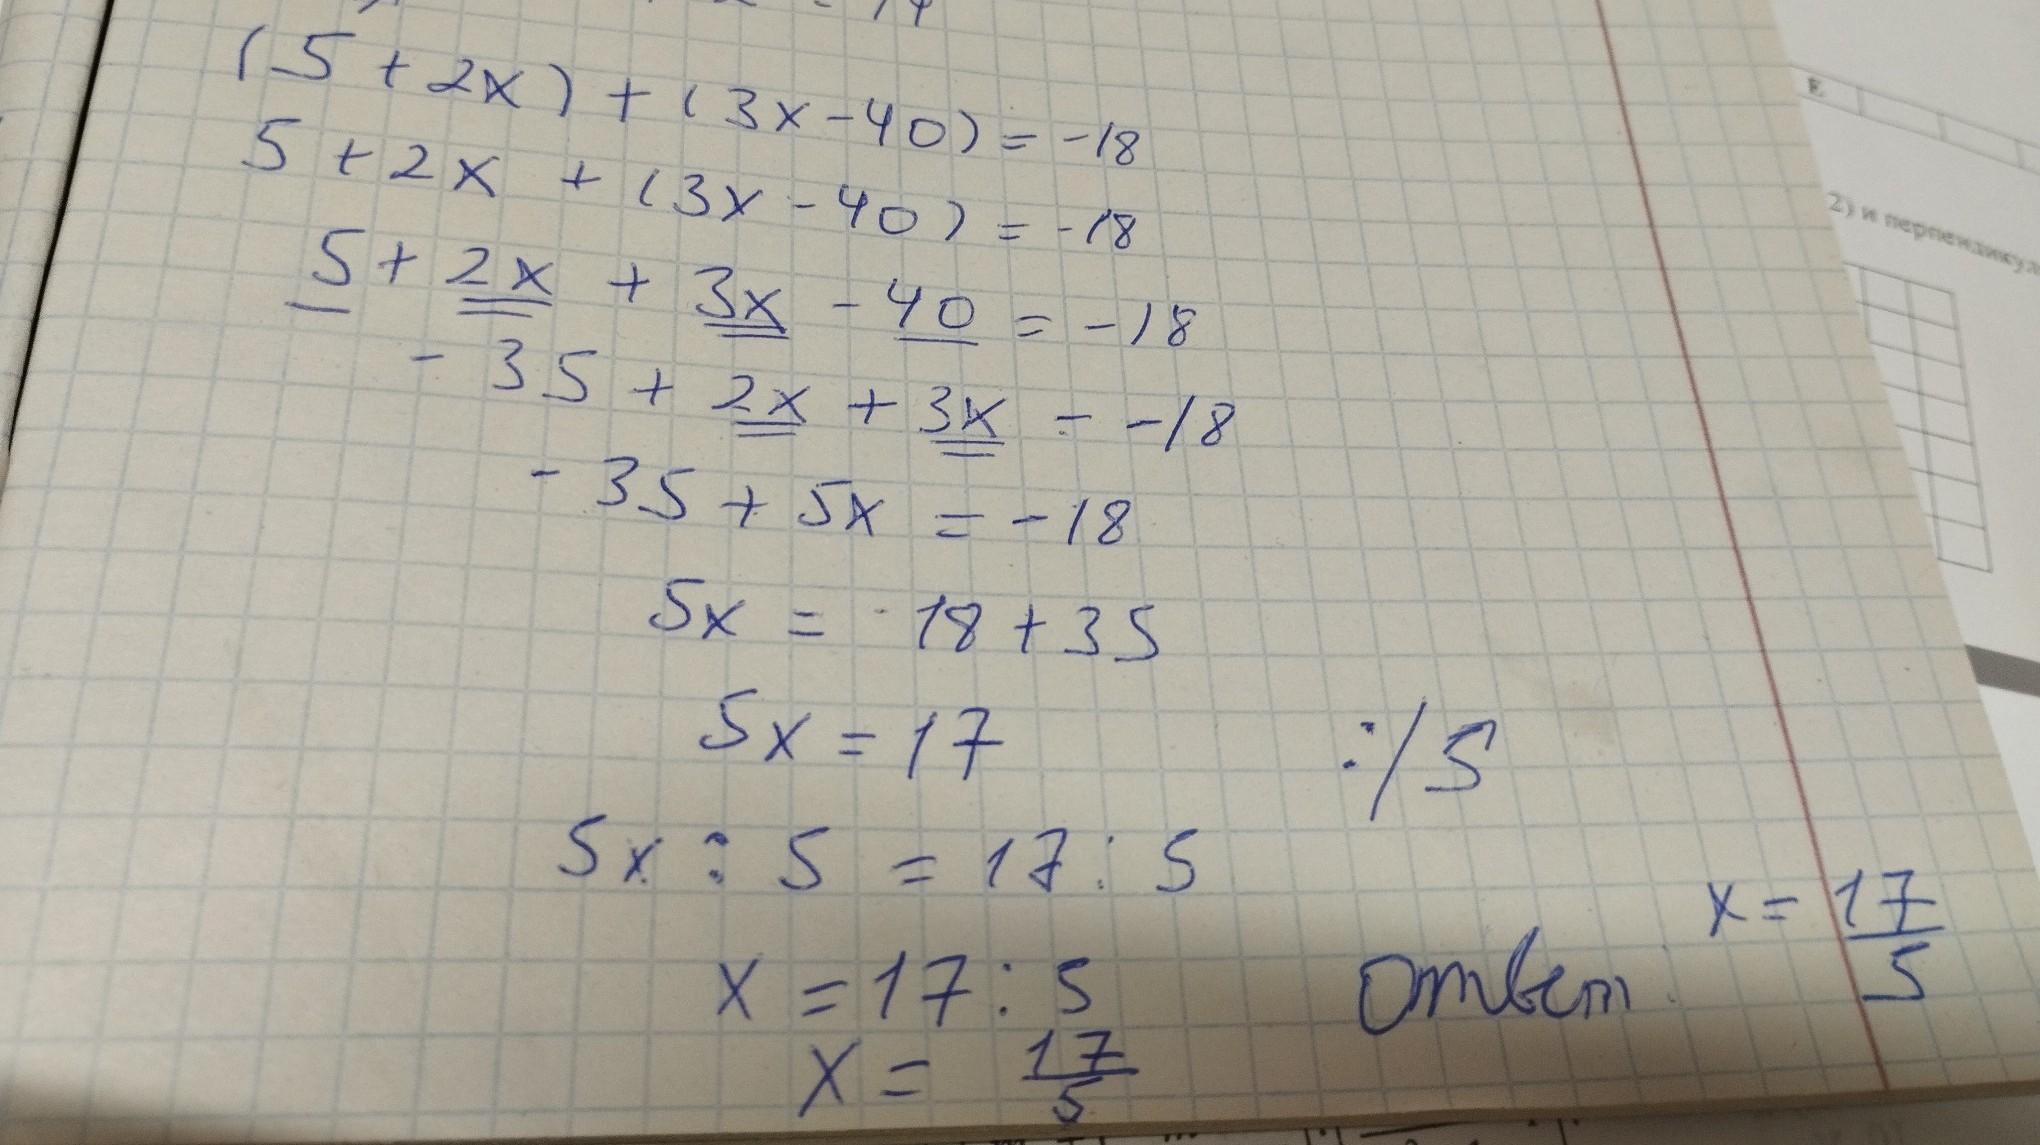 (5 + 2x) + (3x - 40) = -18
5 + 2x + (3x - 40) = -18
5 + 2x + 3x - 40 = -18
- 35 + 2x + 3x = -18
- 35 + 5x = -18
5x = -18 + 35
5x = 17 :/5
5x : 5 = 17 : 5
x = 17 : 5
x = 17/5
Ответ: x = 17/5
2) и перпендику